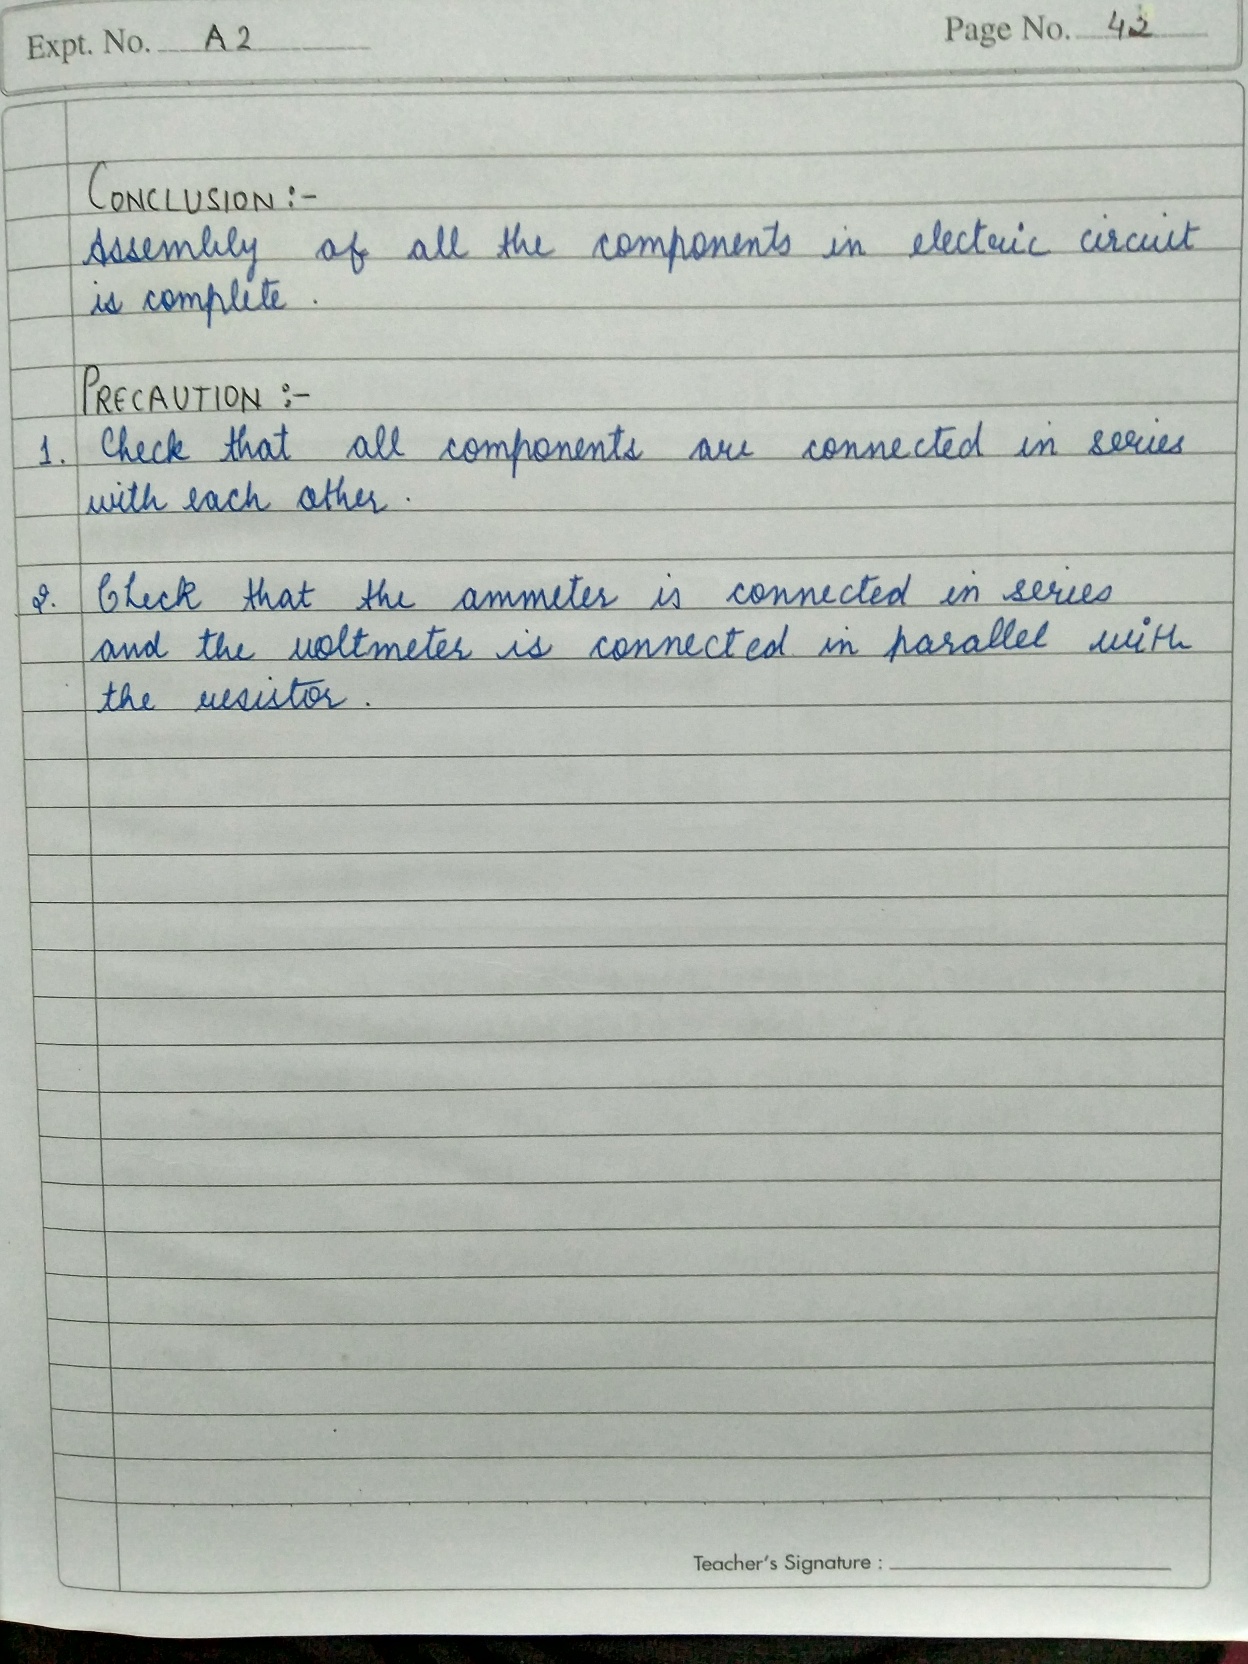 Expt. No. A2
Page No. 42
CONCLUSION :-
Assembly of all the components in electric circuit
is complete .
PRECAUTION :-
1. Check that all components are connected in series
with each other .
2. Check that the ammeter is connected in series
and the voltmeter is connected in parallel with
the resistor .
Teacher's Signature :